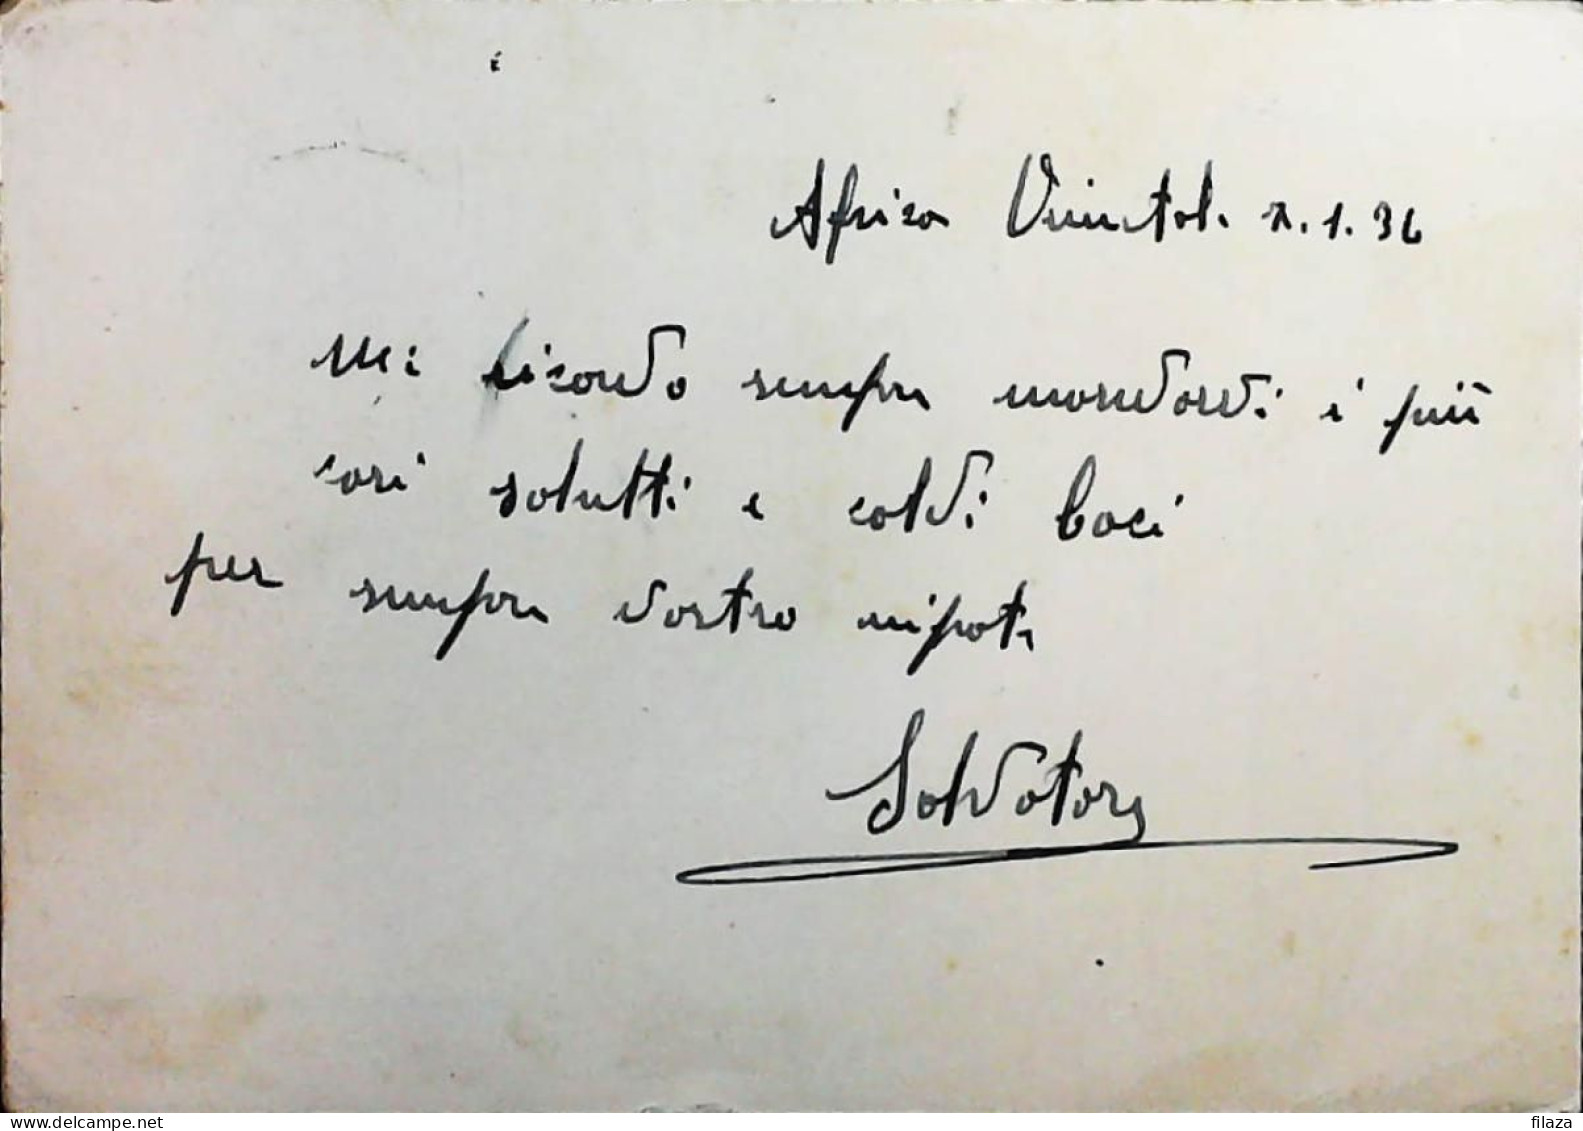 Africa Orientale 7.1.36
Mi ricordo sempre mandarvi i più
cari salutti e caldi baci
per sempre vostro nipote
Salvatore
delcampe.net
filaza